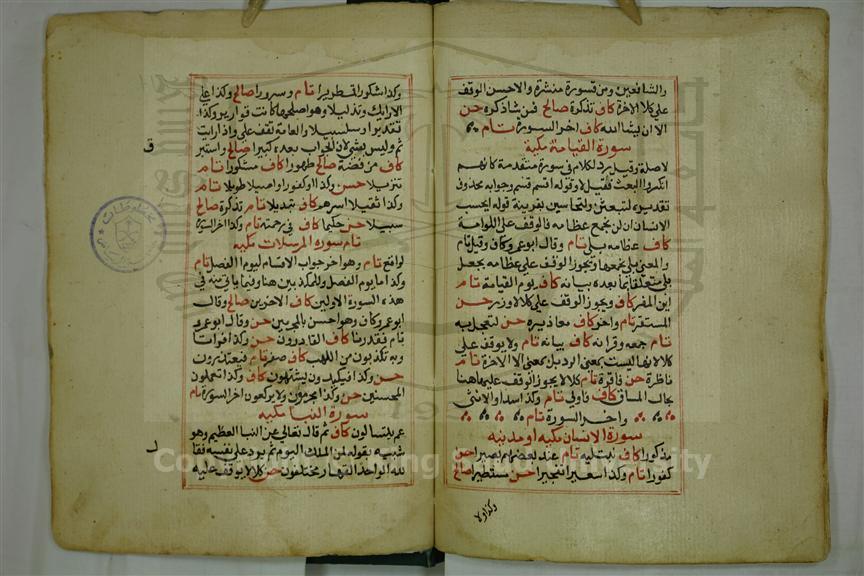 والشافعين ومن قسورة منشرة والاحسن الوقف
على كلا الاخرة كاف تذكرة صالح فمن شاذكره حسن
الا ان يشا الله كاف اخر السورة تام
سورة القيامة مكية
لا صلة وقيل رد لكلام في سورة متقدمة كانهم
انكروا البعث فقيل لا وقوله اقسم قسم وجوابه محذوف
تقديره لتبعثن ولتحاسبن بقرينة قوله ايحسب
الانسان ان لن نجمع عظامه فالوقف على اللوامة
كاف عظامه بلى تام وقال ابو عمرو كاف وقيل تام
والمعنى بلى نجمعها ويجوز الوقف على عظامه بجعل
بلى متعلقا بما بعده بيانه كاف يوم القيامة تام
اين المفر كاف ويجوز الوقف على كلا لا وزر حسن
المستقر تام واخر كاف معاذيره حسن لتعجل به
تام جمعه وقرانه كاف بيانه تام ولا يوقف على
كلا لانها ليست بمعنى الرد بل بمعنى الا الاخرة تام
ناظرة حسن فاقرة تام كلا لا يجوز الوقف عليها هنا
بحال المساق كاف فاولى تام وكذا سدا والانثى
واخر السورة تام
سورة الانسان مكيه او مدنيه
مذكورا كاف نبتليه تام عند بعضهم بصيرا حسن
كفورا تام وكذا سعيرا تفجيرا حسن مستطيرا صالح
وكذا ولا
وكذا شكورا قمطريرا تام وسرورا صالح وكذا على
الارائك وتذليلا وهو اصلحها كانت قواريرا وكذا
تقديرا وسلسبيلا والعامة تقف على واذا رايت
ثم وليس بشي لان الجواب بعده كبيرا صالح واستبر
ق
كاف من فضة صالح طهورا كاف مشكورا تام
تنزيلا حسن وكذا او كفورا واصيلا طويلا تام
وكذا ثقيلا اسرهم كاف تبديلا تام تذكرة صالح
سبيلا حسن حكيما كاف في رحمته تام وكذا اخر السورة
تام سورة المرسلات مكيه
لواقع تام وهو اخر جواب الاقسام ليوم الفصل تام
وكذا ما يوم الفصل وللمكذبين هنا وفيما ياتي منه في
هذه السورة الاولين كاف الاخرين صالح وقال
ابو عمرو كاف وهو احسن بالمجرمين حسن وقال ابو عمرو
تام فقدرنا كاف القادرون حسن وكذا وامواتا
وبه تكذبون من اللهب كاف صفر تام فيعتذرون
حسن وكذا فكيدون يشتهون كاف وكذا تعملون
المحسنين حسن وكذا مجرمون ولا يركعون اخر السورة تام
سورة النبا مكيه
عم يتسالون كاف ثم قال تعالى عن النبا العظيم وهو
شبيه بقوله لمن الملك اليوم ثم يرد على نفسه فقا
ل
لله الواحد القهار مختلفون حسن كلا لا يوقف عليه